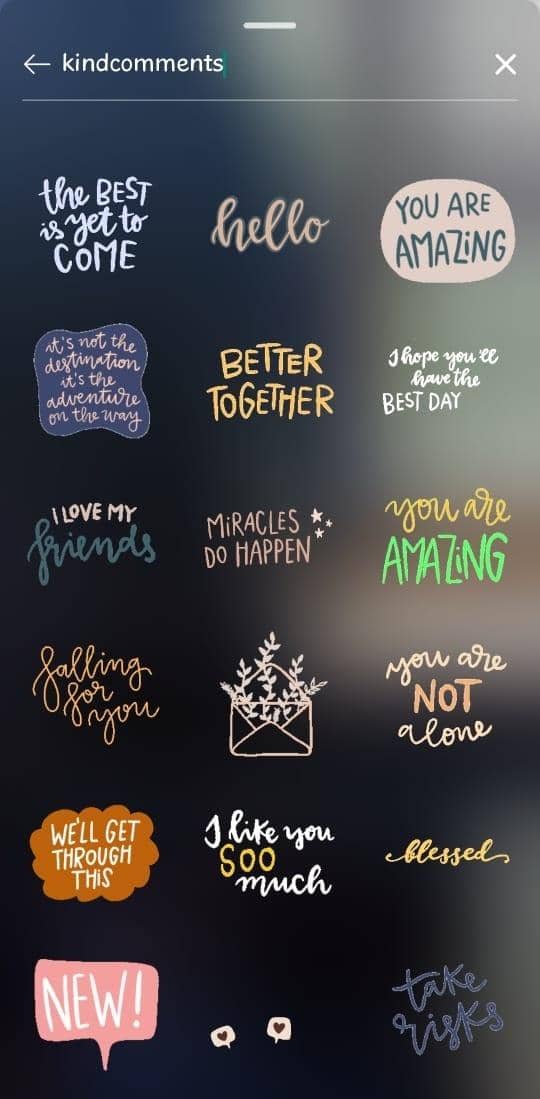 kindcomments
the BEST
is yet to
COME
hello
YOU ARE
AMAZING
it's not the
destination
it's the
adventure
on the way
BETTER
TOGETHER
I hope you'll
have the
BEST DAY
I LOVE MY
friends
MIRACLES
DO HAPPEN
you are
AMAZING
falling
for
you
you are
NOT
alone
WE'LL GET
THROUGH
THIS
I like you
SOO
much
blessed
NEW!
take
risks